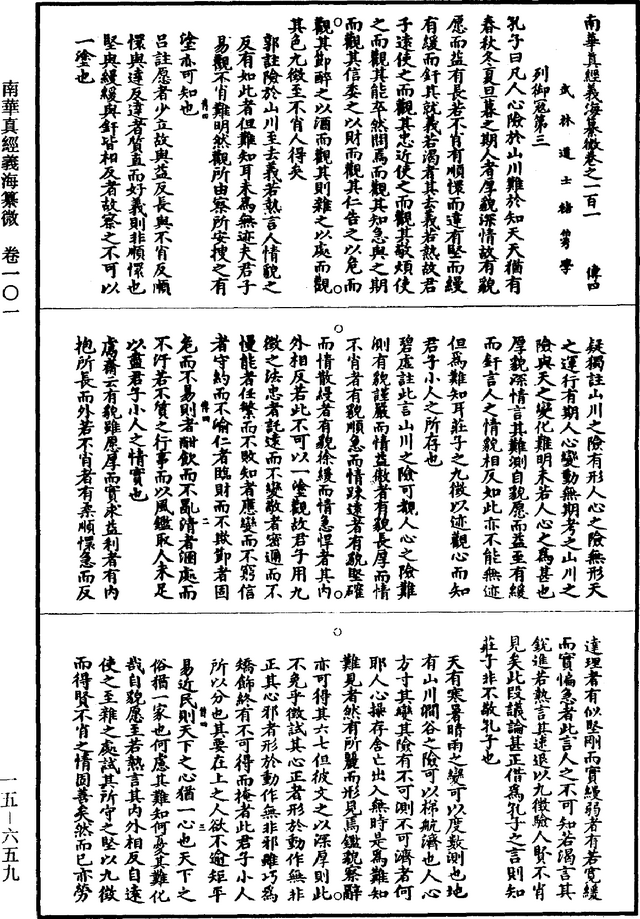 南華真經義海纂微卷之一百一
武林道士褚伯秀學
傳四
列御寇第三
孔子曰凡人心險於山川難於知天天猶有
春秋冬夏旦暮之期人者厚貌深情故有貌
愿而益有長若不肖有順懁而達有堅而縵
有緩而釬其就義若渴者其去義若熱故君
子遠使之而觀其忠近使之而觀其敬煩使
之而觀其能卒然問焉而觀其知急與之期
而觀其信委之以財而觀其仁告之以危而
觀其節醉之以酒而觀其則雜之以處而觀
其色九徵至不肖人得矣
郭註險於山川至去義若熱言人情貌之
反有如此者但難知耳未為無迹夫君子
易觀不肖難明然觀所由察所安搜之有
塗亦可知也
呂註愿者少立故與益反長與不肖反順
懁與達反達者質直而好義則非順懁也
堅與縵緩與釬皆相反者故察之不可以
一塗也
疑獨註山川之險有形人心之險無形天
之運行有期人心變動無期考之山川之
險與天之變化難明未若人心之為甚也
厚貌深情言其難測自貌愿而益至有緩
而釬言人之情貌相反如此亦不能無迹
但為難知耳莊子之九徵以迹觀心而知
君子小人之所存也
碧虛註此言山川之險可觀人心之險難
測有貌謹嚴而情益傲者有貌長厚而情
不肖者有貌順急而情踈達者有貌堅確
而情散縵者有貌徐緩而情急悍者其內
外相反若此不可以一塗觀故君子用九
徵之法忠者託遠而不變敬者密邇而不
慢能者任繁而不敗知者應變而不窮信
者守約而不喻仁者臨財而不欺節者固
危而不易則者酣飲而不亂清者溷處而
不汙若不質之行事而以風鑑取人未足
以盡君子小人之情實也
鬳齋云有貌雖愿厚而實求益利者有內
抱所長而外若不肖者有柔順懁急而反
達理者有似堅剛而實縵弱者有若寬緩
而實褊急者此言人之不可知若渴言其
銳進若熱言其速退以九徵驗人賢不肖
見矣此段議論甚正借為孔子之言則知
莊子非不敬孔子也
天有寒暑晴雨之變可以度數測也地
有山川澗谷之險可以梯航濟也人心
方寸其變其險有不可測不可濟者何
耶人心操存舍亡出入無時是為難知
難見者然有所麗而形見焉鑑觀察辭
亦可得其六七但彼文之以深厚則此
不免乎徵試其心正者形於動作無非
正其心邪者形於動作無非邪雖巧為
矯飾終有不可得而掩者此君子小人
所以分也其要在上之人欲不逾矩平
易近民則天下之心猶一心也天下之
俗猶一家也何慮其難知何憂其難化
哉自貌愿至若熱言其內外相反自遠
使之至雜之處試其所守之堅以九徵
而得賢不肖之情固善矣然而已亦勞
南華真經義海纂微 卷一〇一
一五—六五九